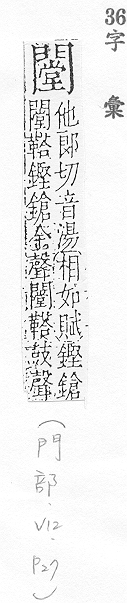 36字彙
闛
他郎切音湯相如賦鏗鎗
闛鞈鏗鎗金聲闛鞈鼓聲
(門部.V12.P27)